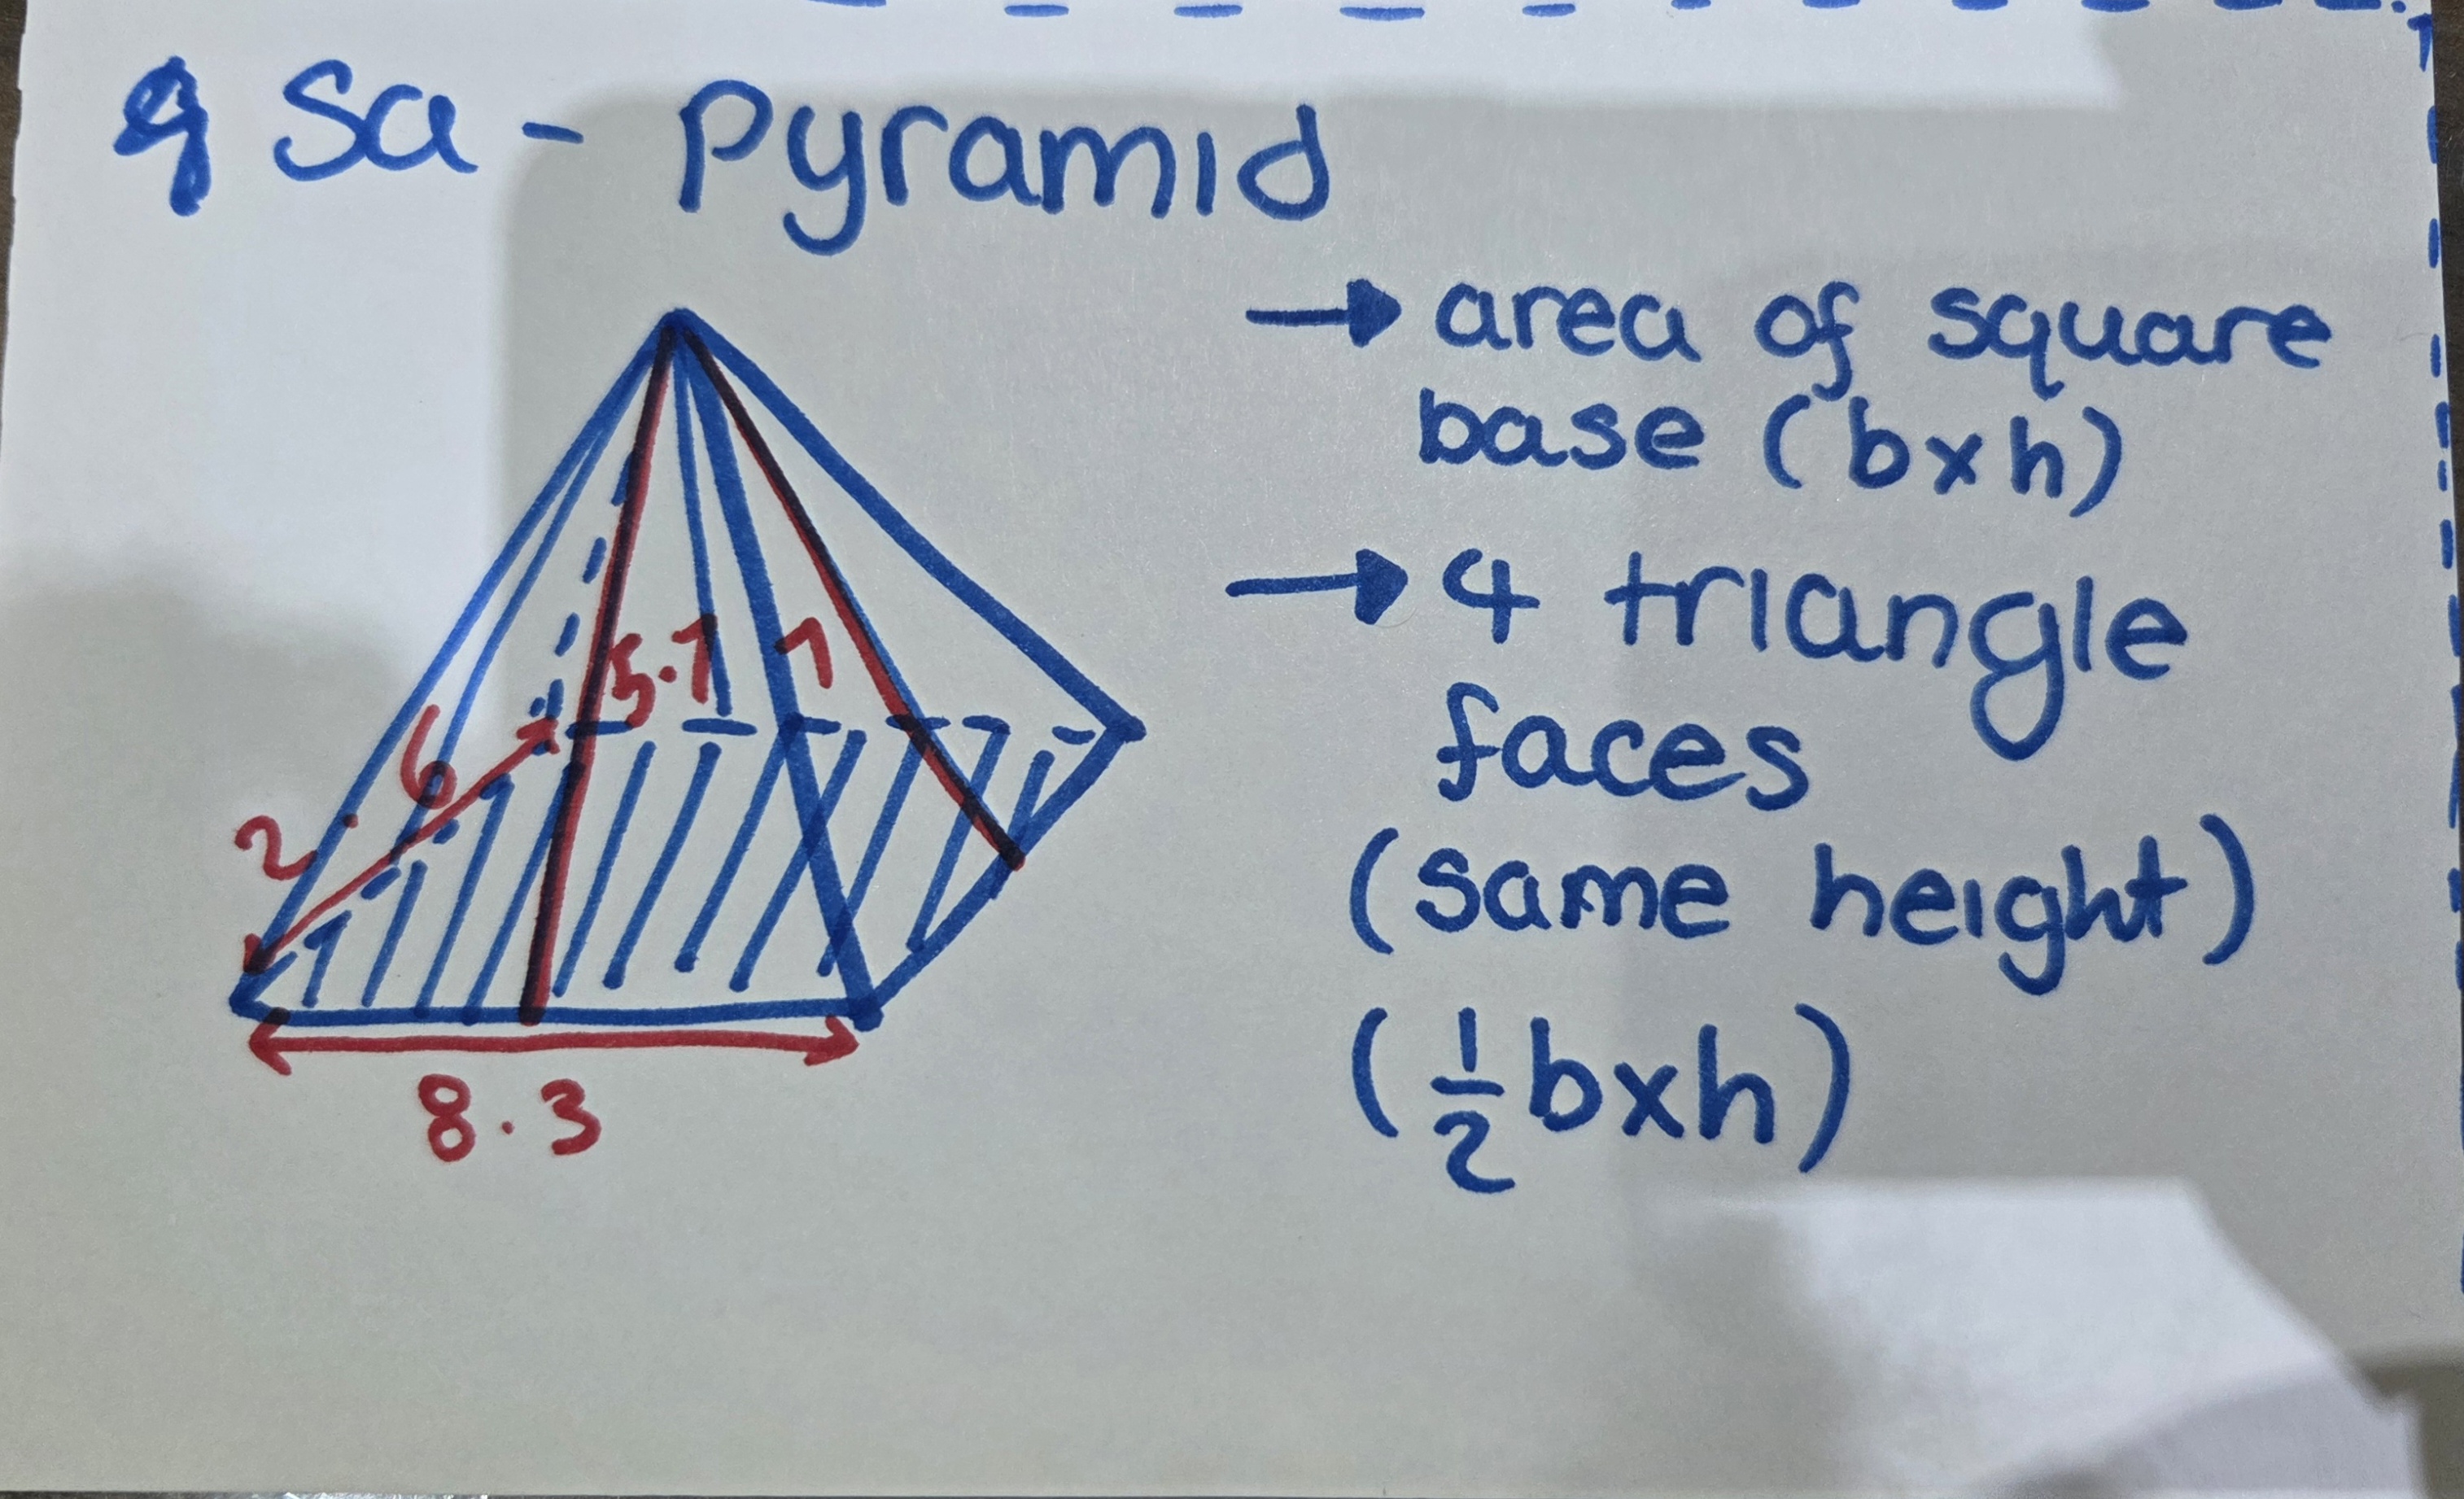 9 Sa - Pyramid
→ area of square
base (bxh)
→ 4 triangle
faces
(same height)
(1/2 bxh)
5.7
7
2.6
8.3